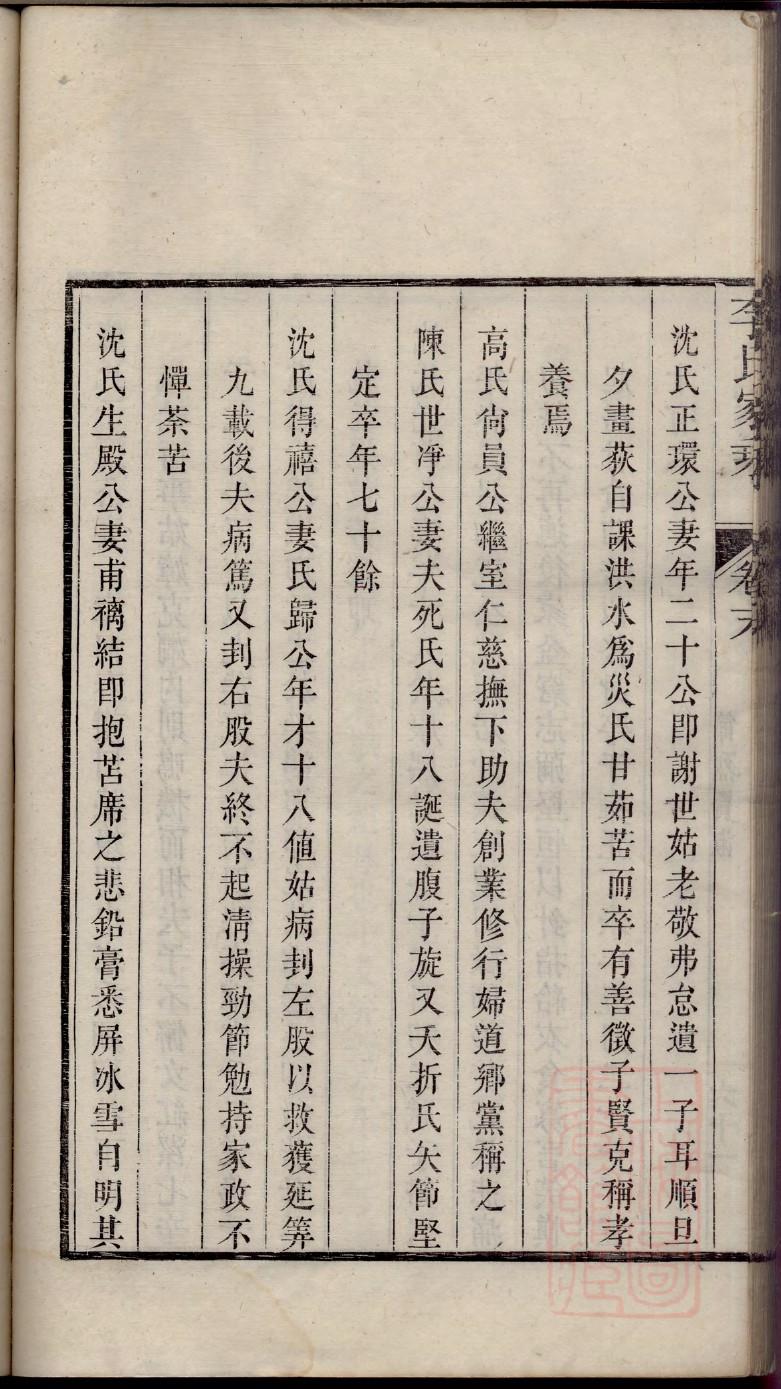 李氏家乘 卷六
沈氏正環公妻年二十公卽謝世姑老敬弗怠遺一子耳順旦
夕畫荻自課洪水爲災氏甘茹苦而卒有善徵子賢克稱孝
養焉
高氏尙員公繼室仁慈撫下助夫創業修行婦道鄉黨稱之
陳氏世凈公妻夫死氏年十八誕遺腹子旋又夭折氏矢節堅
定卒年七十餘
沈氏得禧公妻氏歸公年才十八値姑病刲左股以救獲延筭
九載後夫病篤又刲右股夫終不起淸操勁節勉持家政不
憚荼苦
沈氏生殿公妻甫褵結卽抱苫席之悲鉛膏悉屏冰雪自明其